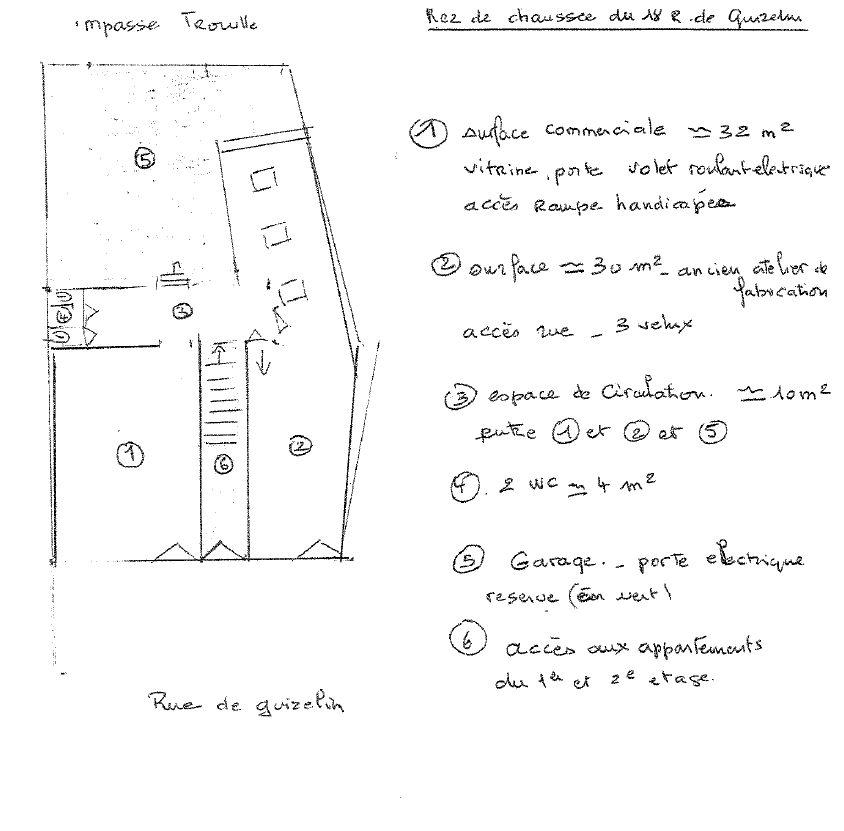 Impasse Trouille
Rez de chaussée du 18 R. de Guizelin
① surface commerciale ≃ 32 m²
vitrine, porte volet roulant electrique
accès Rampe handicapée
② surface ≃ 30 m² - ancien atelier de
fabrication
accès rue - 3 velux
③ espace de Circulation. ≃ 10 m²
entre ① et ② et ⑤
④. 2 WC ≃ 4 m²
⑤ Garage. - porte electrique
reserve (en vert)
⑥ accès aux appartements
du 1er et 2e etage.
⑤
④
③
①
⑥
②
Rue de guizelin